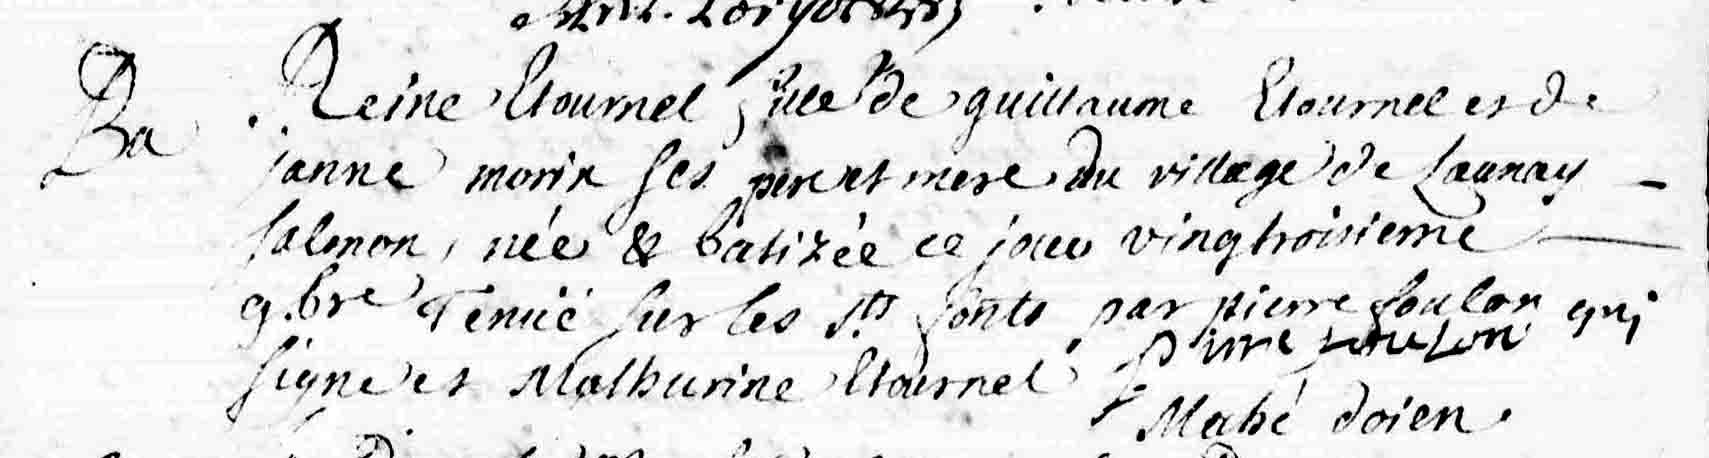 Ba
Reine Etournel fille de guillaume Etournel et de
janne morin ses pere et mere du village de Launay
salmon, née & batizée ce jour vingtroisieme
9.bre Tenüe sur les sts fonts par pierre foulon qui
signe et Mathurine Etournel pierre foulon
Mahé doien